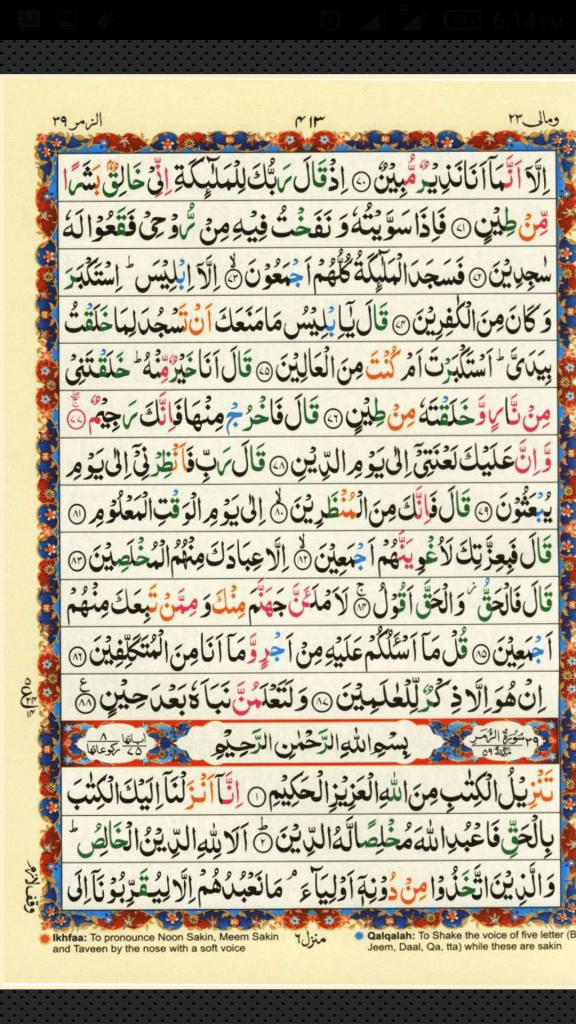 6:14 PM
ومالی ٢٣
٤١٣
الزمر ٣٩
اِلَّاۤ اَنَّمَاۤ اَنَا نَذِيْرٌ مُّبِيْنٌ ﴿٧٠﴾ اِذْ قَالَ رَبُّكَ لِلْمَلٰٓئِكَةِ اِنِّىْ خَالِقٌۢ بَشَرًا
مِّنْ طِيْنٍ ﴿٧١﴾ فَاِذَا سَوَّيْتُهٗ وَ نَفَخْتُ فِيْهِ مِنْ رُّوْحِىْ فَقَعُوْا لَهٗ
سٰجِدِيْنَ ﴿٧٢﴾ فَسَجَدَ الْمَلٰٓئِكَةُ كُلُّهُمْ اَجْمَعُوْنَ ﴿٧٣﴾ اِلَّاۤ اِبْلِيْسَ ؕ اِسْتَكْبَرَ
وَ كَانَ مِنَ الْكٰفِرِيْنَ ﴿٧٤﴾ قَالَ يٰۤاِبْلِيْسُ مَا مَنَعَكَ اَنْ تَسْجُدَ لِمَا خَلَقْتُ
بِيَدَىَّ ؕ اَسْتَكْبَرْتَ اَمْ كُنْتَ مِنَ الْعَالِيْنَ ﴿٧٥﴾ قَالَ اَنَا خَيْرٌ مِّنْهُ ؕ خَلَقْتَنِىْ
مِنْ نَّارٍ وَّ خَلَقْتَهٗ مِنْ طِيْنٍ ﴿٧٦﴾ قَالَ فَاخْرُجْ مِنْهَا فَاِنَّكَ رَجِيْمٌ ﴿٧٧﴾
وَّ اِنَّ عَلَيْكَ لَعْنَتِىْۤ اِلٰى يَوْمِ الدِّيْنِ ﴿٧٨﴾ قَالَ رَبِّ فَاَنْظِرْنِىْۤ اِلٰى يَوْمِ
يُبْعَثُوْنَ ﴿٧٩﴾ قَالَ فَاِنَّكَ مِنَ الْمُنْظَرِيْنَ ﴿٨٠﴾ اِلٰى يَوْمِ الْوَقْتِ الْمَعْلُوْمِ ﴿٨١﴾
قَالَ فَبِعِزَّتِكَ لَاُغْوِيَنَّهُمْ اَجْمَعِيْنَ ﴿٨٢﴾ اِلَّا عِبَادَكَ مِنْهُمُ الْمُخْلَصِيْنَ ﴿٨٣﴾
قَالَ فَالْحَقُّ وَ الْحَقَّ اَقُوْلُ ﴿٨٤﴾ لَاَمْلَئَنَّ جَهَنَّمَ مِنْكَ وَ مِمَّنْ تَبِعَكَ مِنْهُمْ
اَجْمَعِيْنَ ﴿٨٥﴾ قُلْ مَاۤ اَسْئَلُكُمْ عَلَيْهِ مِنْ اَجْرٍ وَّ مَاۤ اَنَا مِنَ الْمُتَكَلِّفِيْنَ ﴿٨٦﴾
اِنْ هُوَ اِلَّا ذِكْرٌ لِّلْعٰلَمِيْنَ ﴿٨٧﴾ وَ لَتَعْلَمُنَّ نَبَاَهٗ بَعْدَ حِيْنٍ ﴿٨٨﴾
٣٩ سُوْرَةُ الزُّمَرِ مَكِّيَّةٌ ٥٩
بِسْمِ اللهِ الرَّحْمٰنِ الرَّحِيْمِ
اٰياتها ٧٥ ركوعاتها ٨
تَنْزِيْلُ الْكِتٰبِ مِنَ اللهِ الْعَزِيْزِ الْحَكِيْمِ ﴿١﴾ اِنَّاۤ اَنْزَلْنَاۤ اِلَيْكَ الْكِتٰبَ
بِالْحَقِّ فَاعْبُدِ اللهَ مُخْلِصًا لَّهُ الدِّيْنَ ﴿٢﴾ اَلَا لِلّٰهِ الدِّيْنُ الْخَالِصُ ؕ
وَ الَّذِيْنَ اتَّخَذُوْا مِنْ دُوْنِهٖۤ اَوْلِيَآءَ ۘ مَا نَعْبُدُهُمْ اِلَّا لِيُقَرِّبُوْنَاۤ اِلَى
وقف لازم
منزل ٦
Ikhfaa: To pronounce Noon Sakin, Meem Sakin
and Taveen by the nose with a soft voice
Qalqalah: To Shake the voice of five letter (B
Jeem, Daal, Qa, tta) while these are sakin